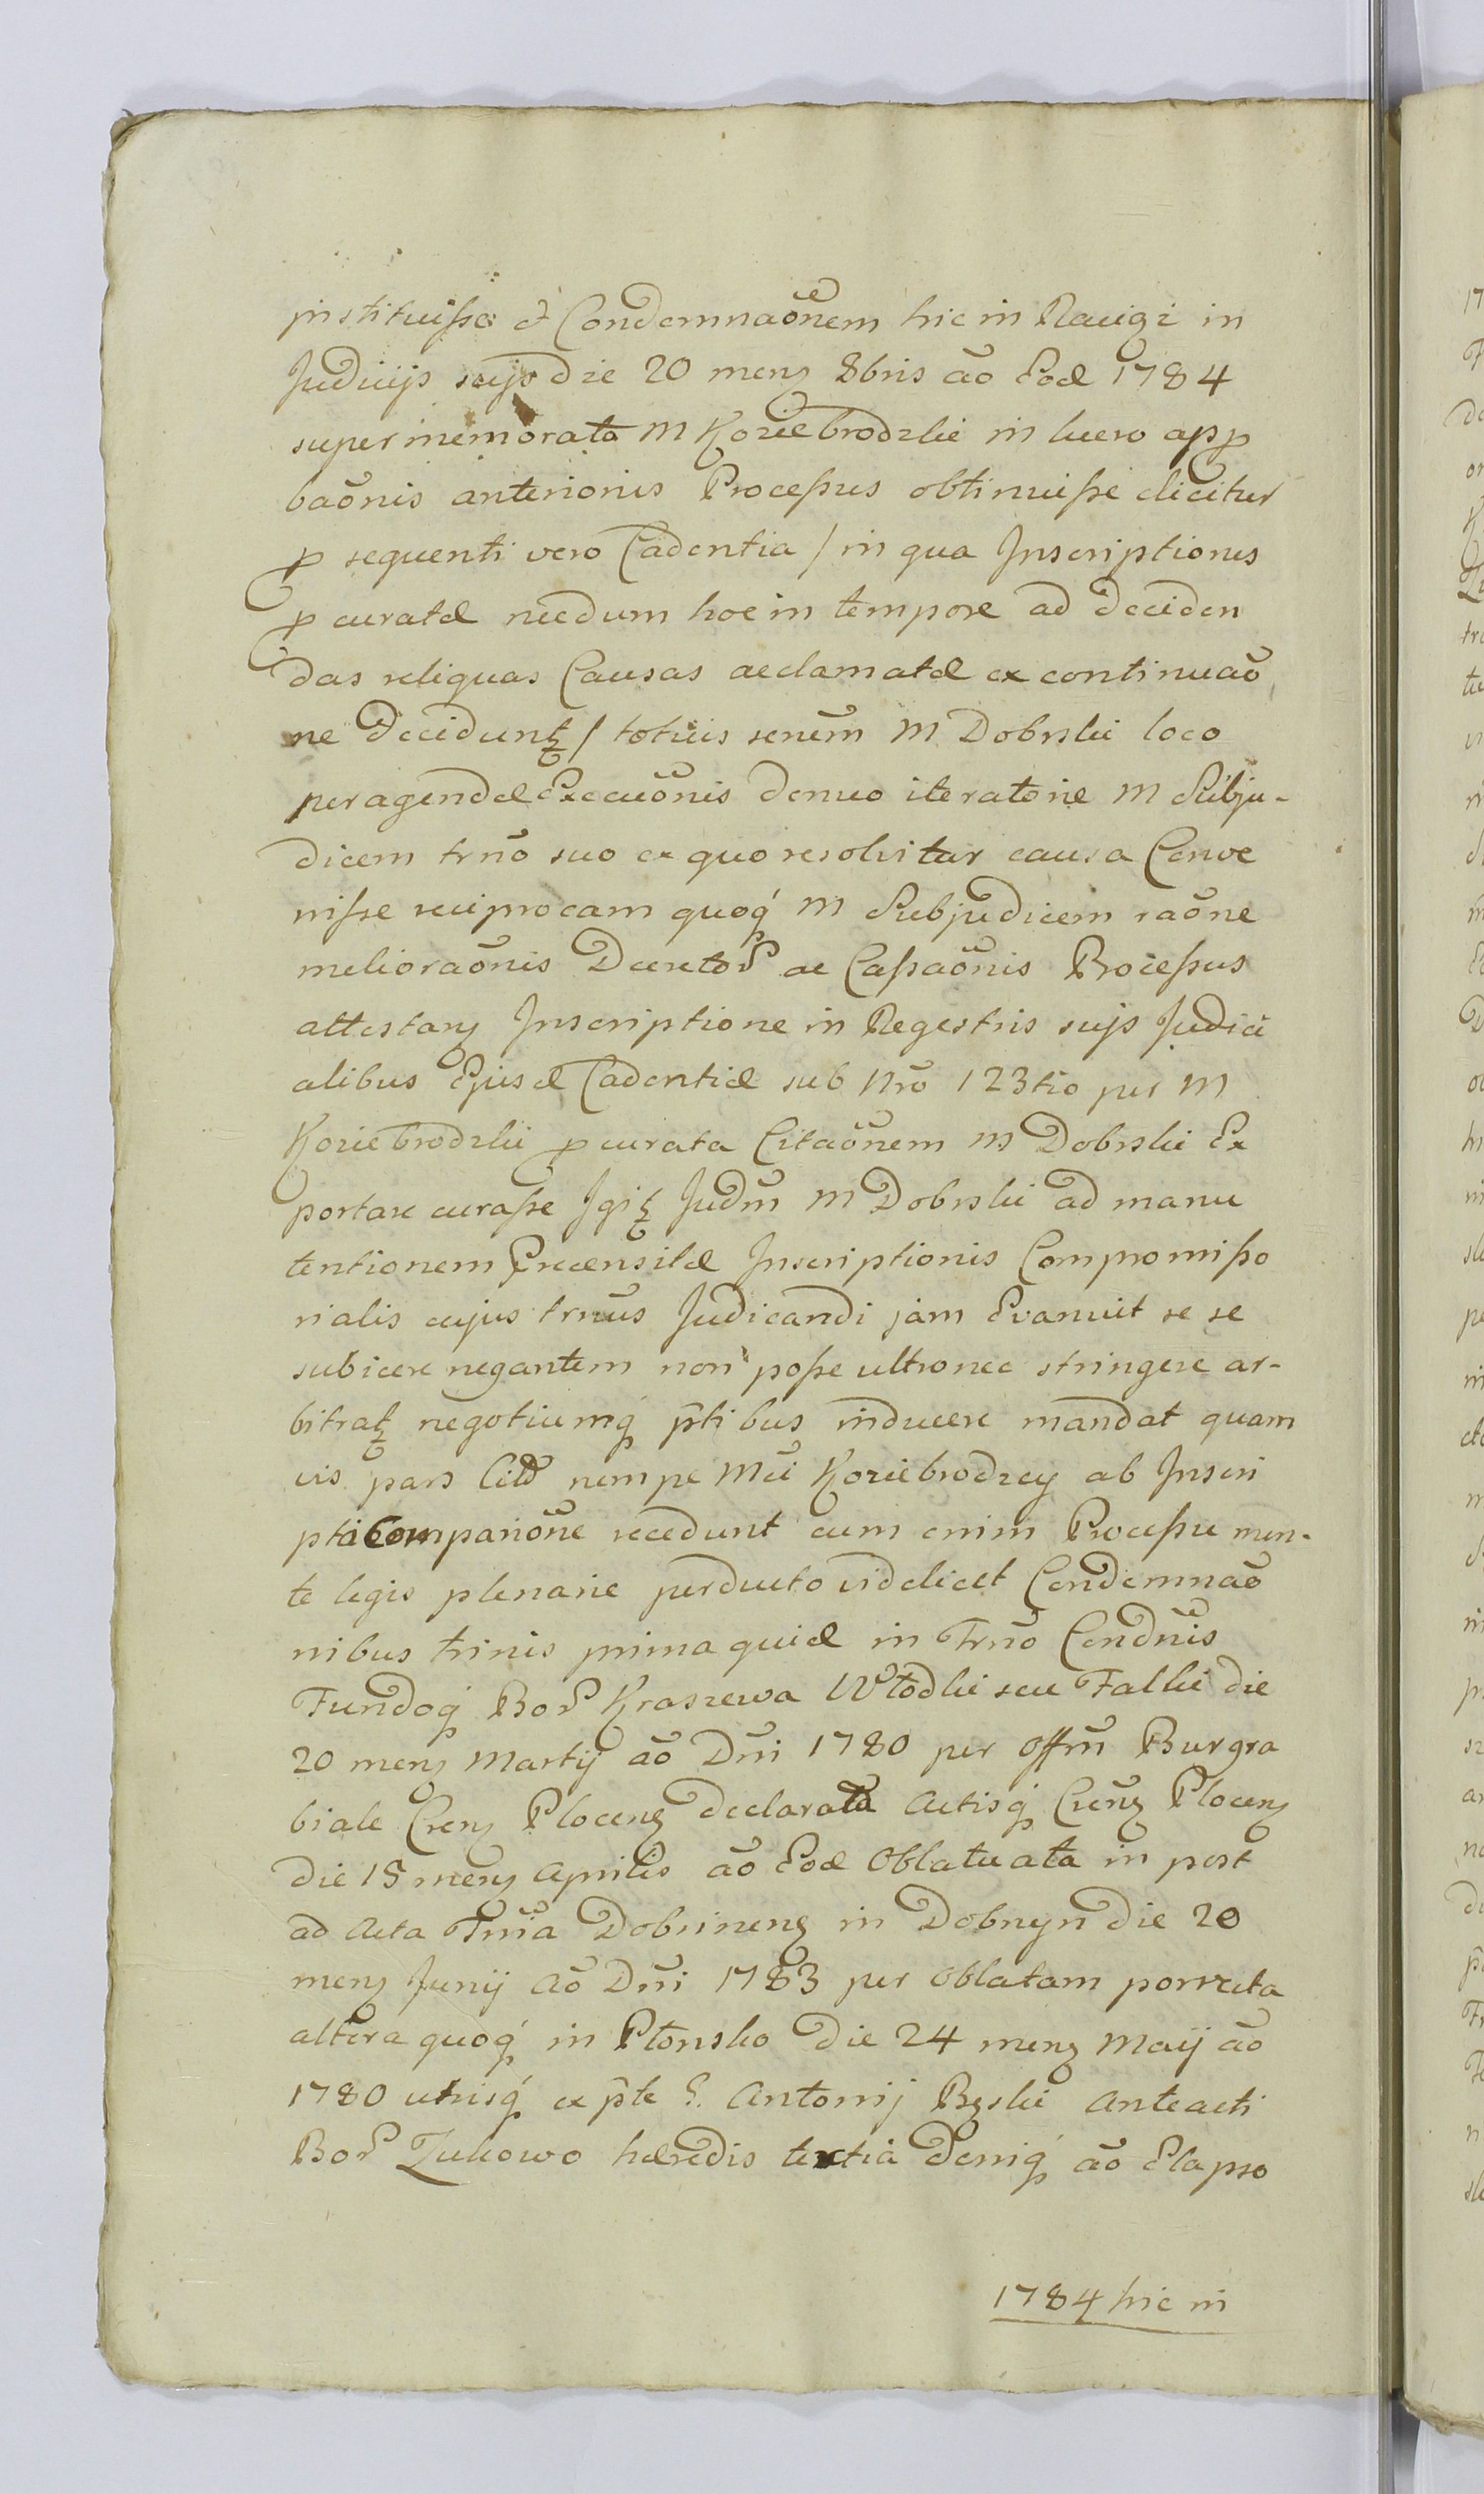 instituisse et Condemnaõnem hic in Raciąż in
Judicijs sujs die 20 mens 8bris aõ Eod 1784
supermemorata M Koziebrodzki in lucro app
baõnis anterioris Processus obtinuisse dicitur
p sequenti vero Cadentia / in qua Inscriptiones
p curatæ necdum hoc in tempore ad deciden
das reliquas Causas acclamatæ ex continuaõ
ne decidunt / totius senem M Dobrski loco
peragendæ Execuõnis denuo iteratorie M Subju-
dicem trno suo ex quo resolvitur causa Conve
nisse reciprocam quoq M Subjudicem raõne
melioraõnis Decretor ac Cassaõnis Processus
attestans Inscriptione in Regestris sujs Judici
alibus Ejusd Cadentiæ sub Nrõ 123tio per M
Koziebrodzki p curata Citaõnem M Dobrski Ex
portare curasse Igit Judm M Dobrski ad manu
tentionem Præcensitæ Inscriptionis Compromisso
rialis cujus trnus Judicandi jam Evanuit se se
subicere negantem non posse ultronee stringere ar-
bitrat negotiumq ptibus inducere mandat quam
vis pars Citt nempe Mci Koziebrodzcy ab Inscri
pti Comparõne recedunt cum enim Processu men-
te legis plenarie perducto videlicet Condemnaõ
nibus trinis prima quid in Trno Condnis
Fundoq Bor Kraszewa Włodki seu Falki die
20 mens Martij aõ Dni 1780 per Offm Burgra
biale Crens Plocens declarata Actisq Crens Plocens
die 15 mens Aprilis aõ Eod Oblatuata in post
ad Acta Trnia Dobrinens in Dobrzyn die 20
mens Junij Aõ Dni 1783 per Oblatam porrecta
altera quoq in Płonsko die 24 mens Maij aõ
1780 utrisq ex pte G. Antonij Bęski Anteacti
Bor Zukowo hæredis tertia deniq aõ Elapso
1784 hic in